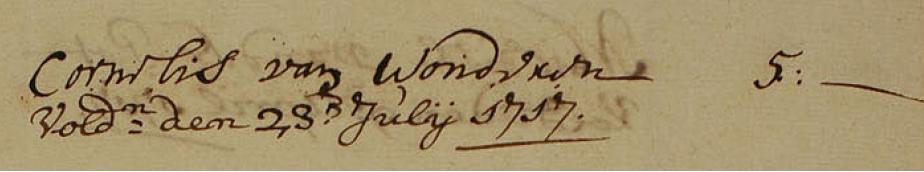 Cornelis van Wonderen 5:—
Voldn. den 23e Julij 1717.